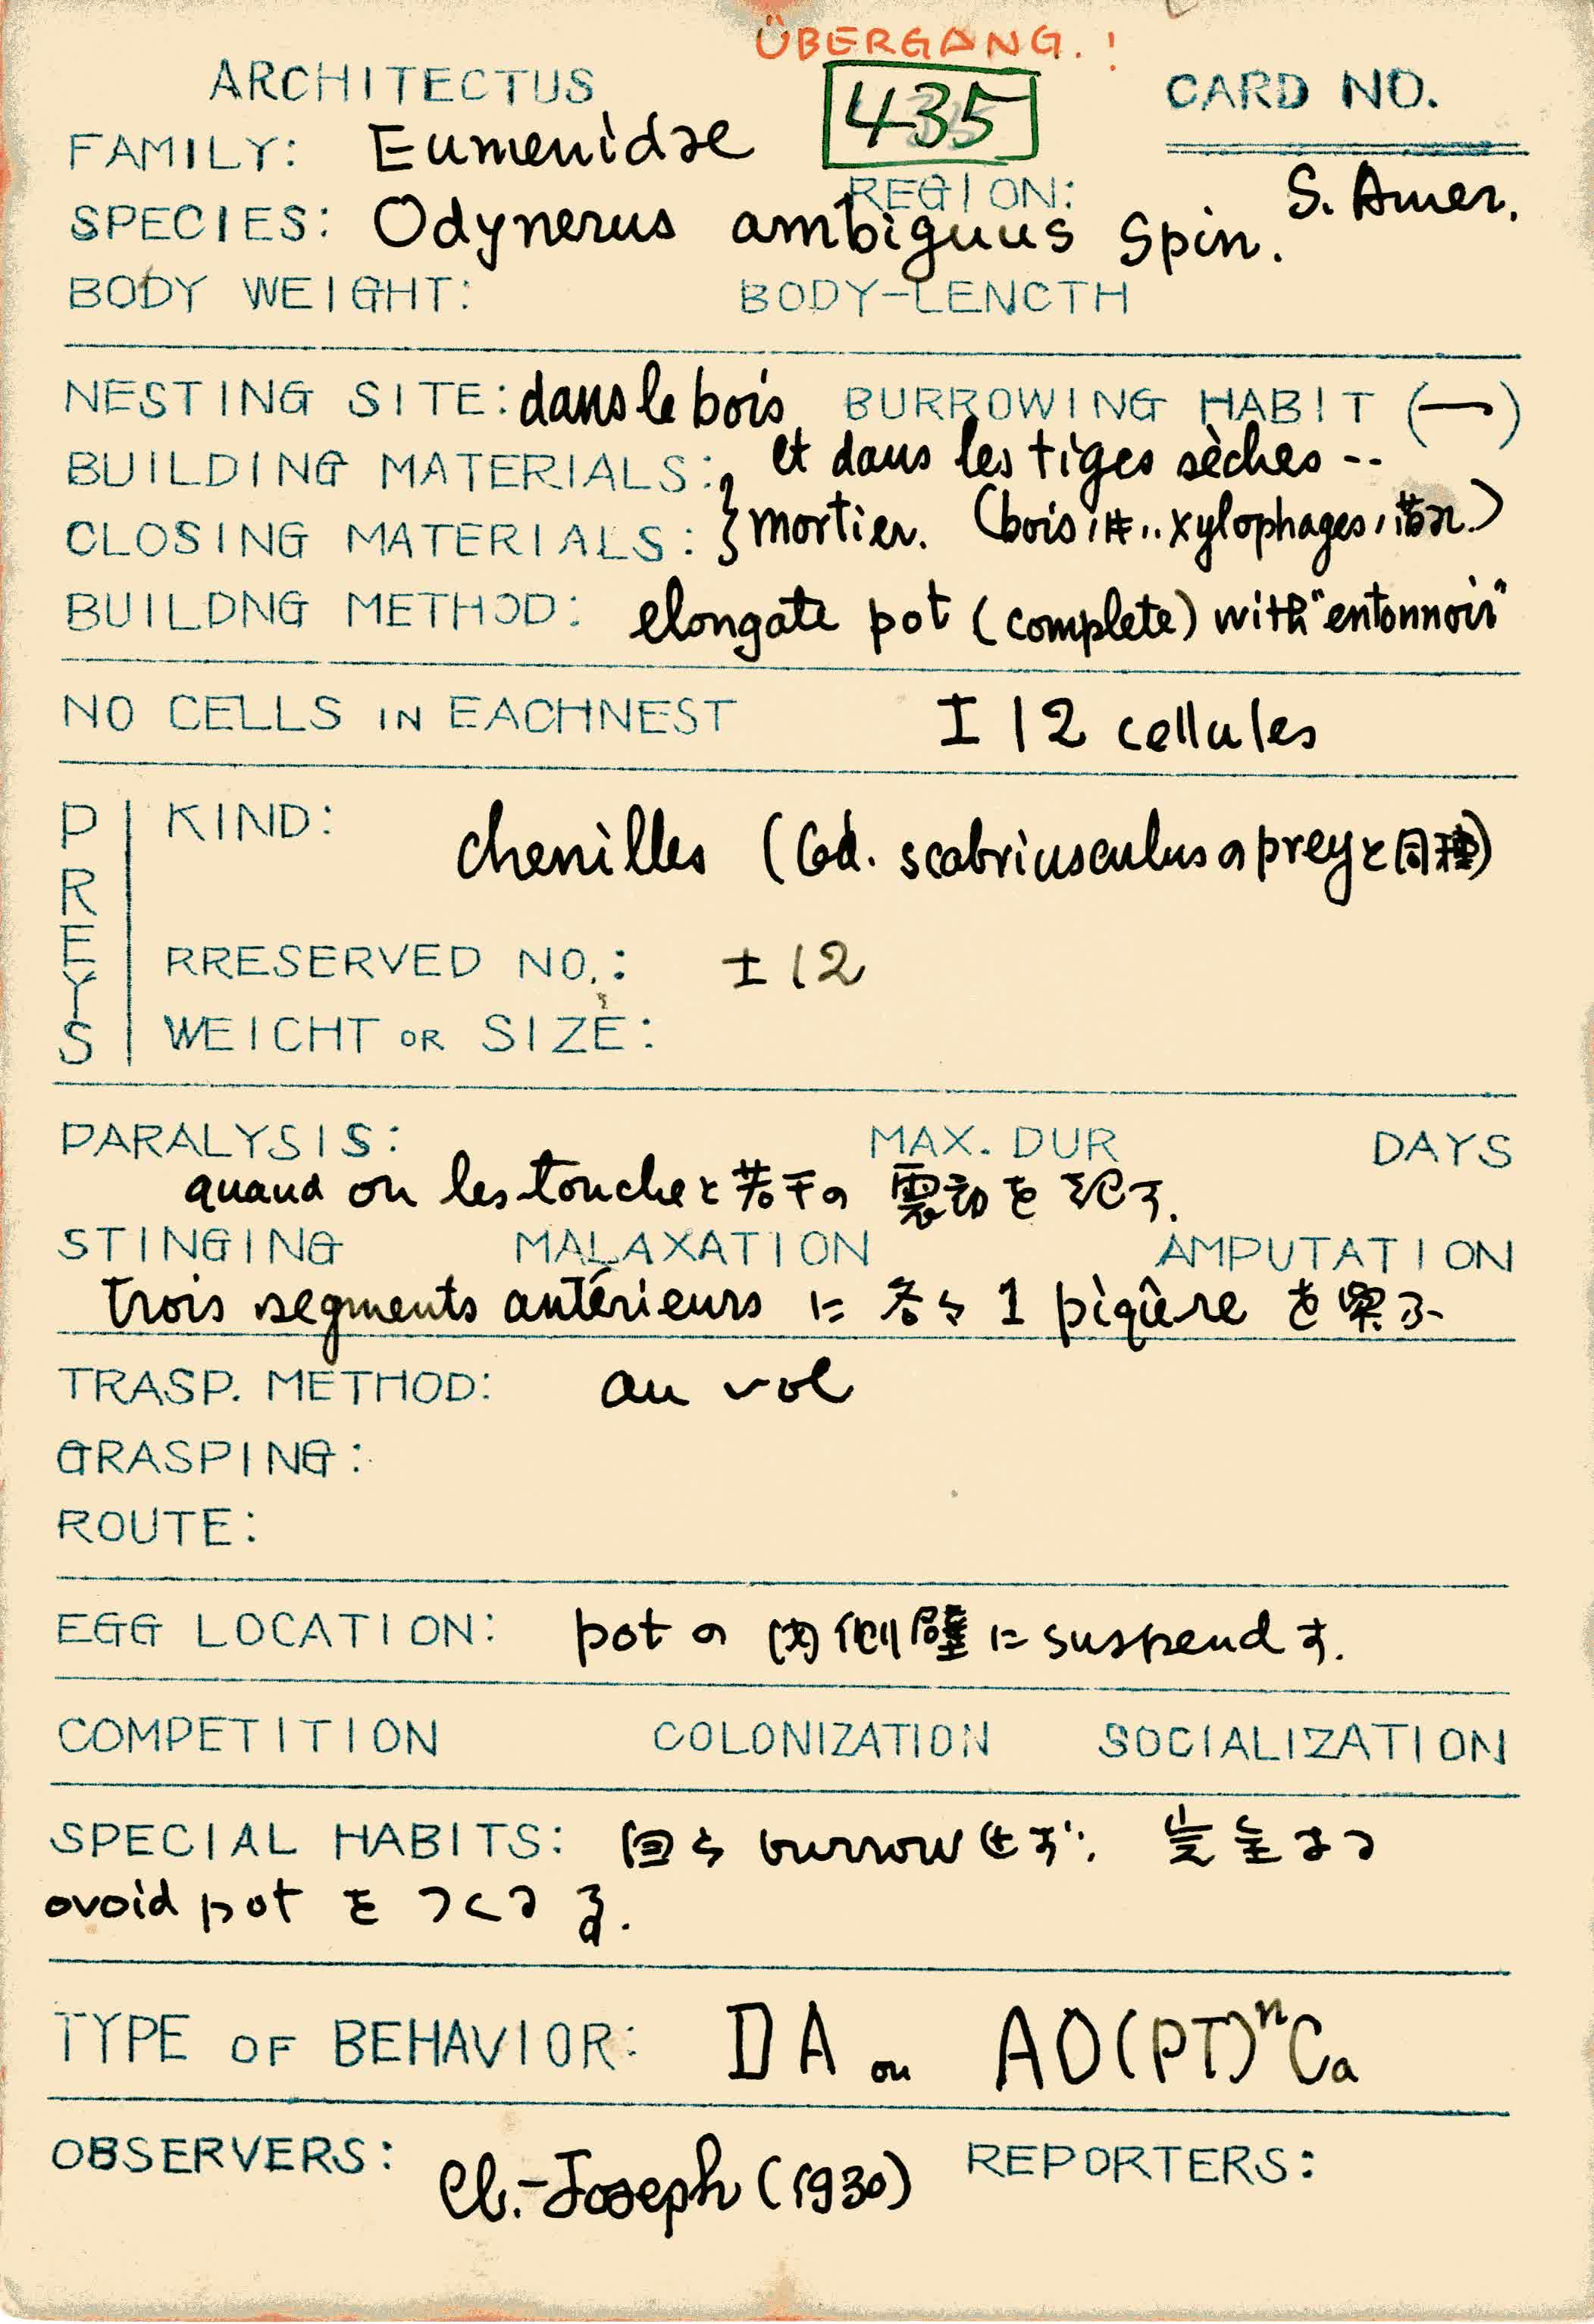 ÜBERGANG.!
ARCHITECTUS 435 CARD NO.
FAMILY: Eumenidae
REGION: S. Amer.
SPECIES: Odynerus ambiguus Spin.
BODY WEIGHT: BODY-LENCTH
NESTING SITE: dans le bois BURROWING HABIT (—)
et dans les tiges sèches --
BUILDING MATERIALS:
CLOSING MATERIALS: } mortier. (bois ハ xylophages)
BUILDNG METHOD: elongate pot (complete) with "entonnoir"
NO CELLS IN EACHNEST ± 12 cellules
PREYS
KIND: chenilles (Od. scabriusculus の prey と同種)
RRESERVED NO.: ±12
WEICHT OR SIZE:
PARALYSIS: MAX. DUR DAYS
quand on les touche と若干の震動を起す.
STINGING MALAXATION AMPUTATION
trois segments antérieurs に各々1 piqûre を與フ
TRASP. METHOD: au vol
GRASPING:
ROUTE:
EGG LOCATION: pot の内側壁に suspend す.
COMPETITION COLONIZATION SOCIALIZATION
SPECIAL HABITS: 自ら burrow せず、完全なる
ovoid pot をつくる
TYPE OF BEHAVIOR: DA ou AO(PT)ⁿCa
OBSERVERS: Cl.-Joseph (1930) REPORTERS: